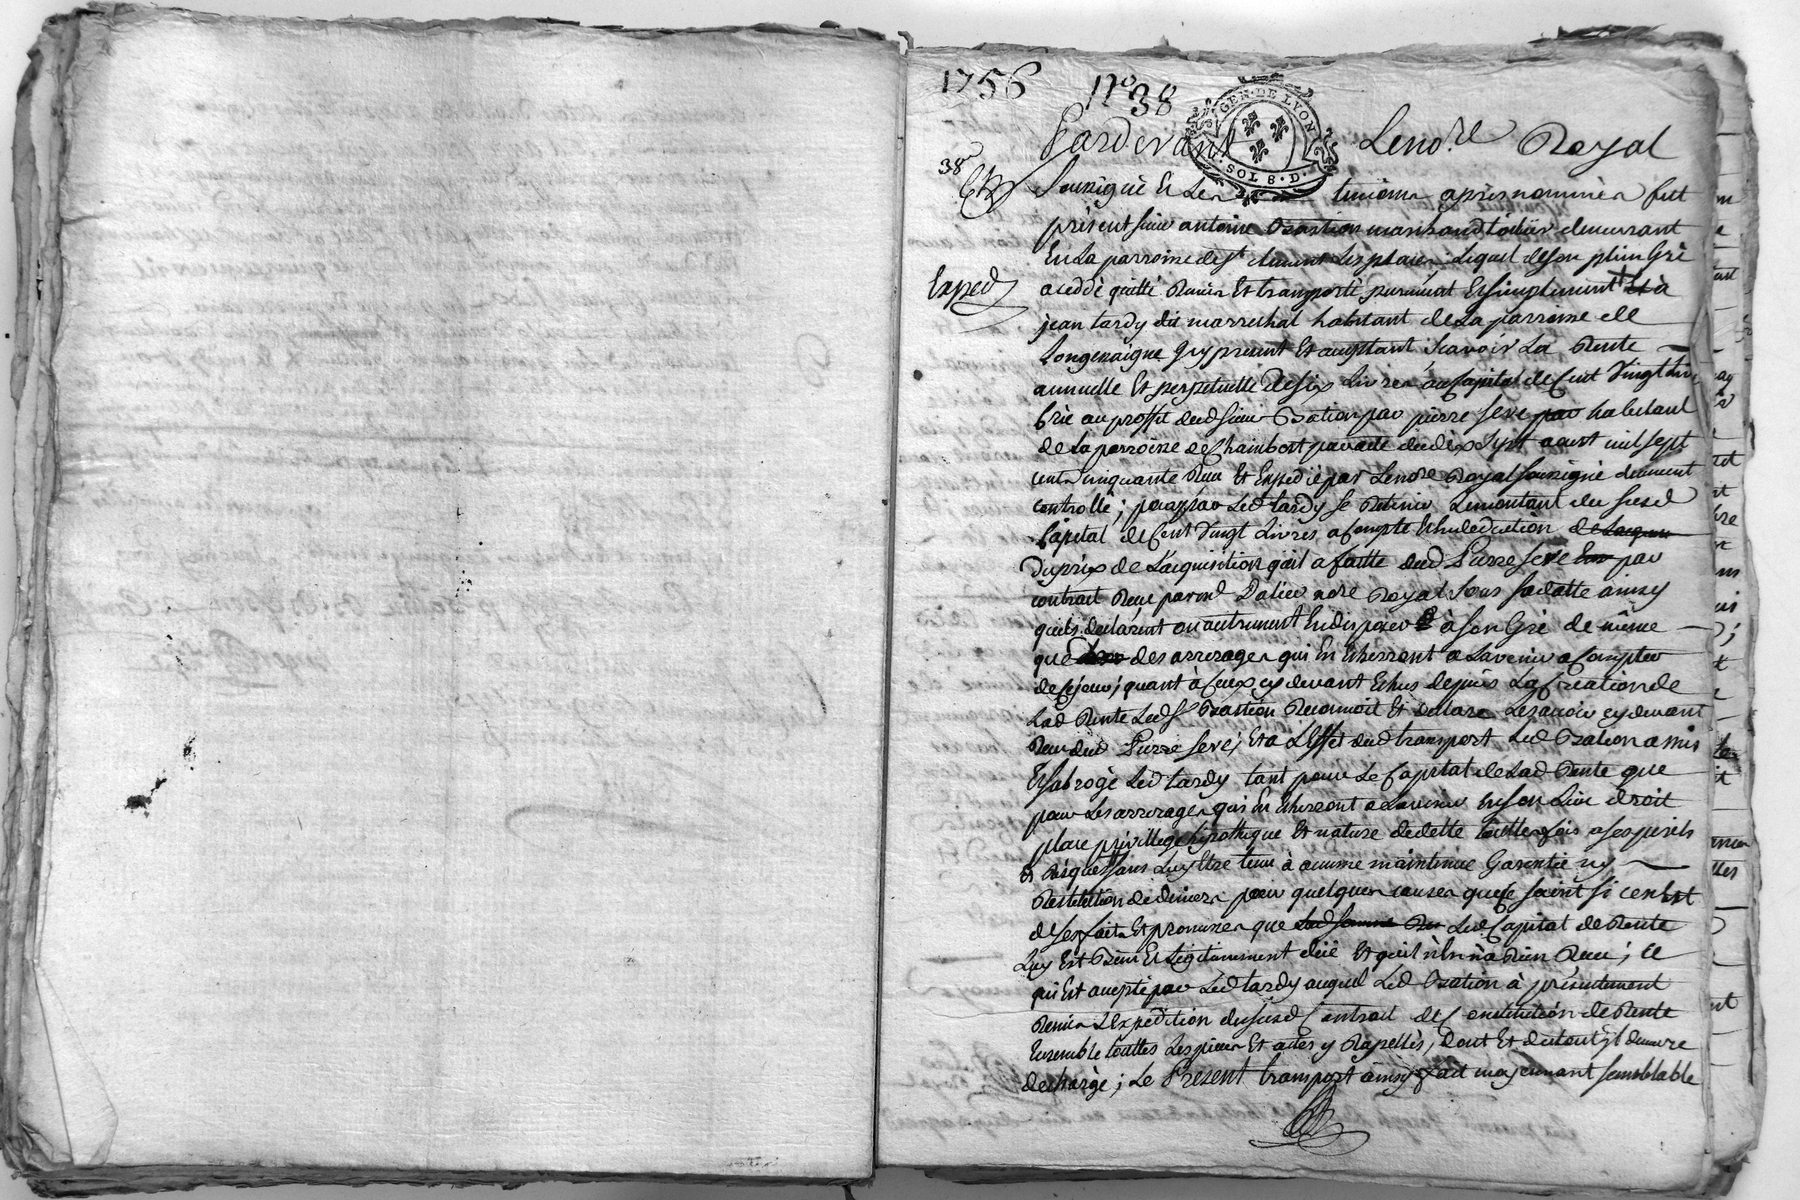 1756 n° 38
GEN · DE LYON
SOL 8 · D ·
Pardevant Le no.re Royal
38
Soussigné Et Les temoins apres nommés fut
présent sieur antoine marchand toilier demeurant
En La parroisse de st clement Les places Lequel de son plein Gré
Exped
a ceddé quitté Remis Et transporté purement Et simplement Et à
jean tardy dit marrechal habitant de La parroisse de
Longessaigne icy present Et aceptant Scavoir La Rente
annuelle Et perpetuelle de six Livres au Capital de Cent Vingt Livres
Crée au proffit dud sieur par pierre seve par habitant
de La parroisse de Chambost par acte du dix sept aoust mil sept
cent cinquante Receu Et Expedié par Le nore Royal soussigné duement
controllé ; pour par Led tardy se Retenir Le montant du susd
Capital de Cent Vingt Livres a Compte Et en deduction
du prix de Lacquisition quil a faitte dud Pierre seve par
contrat Receu par md Dalieu nore Royal sous sa datte ainsy
quils declarent ou autrement En disposer à son Gré de même
que des arrerages qui En Echerront a Lavenir a Compter
de Ce jour ; quant à Ceux cy devant Echus depuis La Creation de
Lad Rente Led sr Reconnoit Et declare Les avoir cy devant
Receu dud Pierre seve ; Et a L'Effet dud transport Led a mis
Et subrogé Led tardy tant pour Le Capital de Lad Rente que
pour Les arrerages qui En Echerront a Lavenir En son Lieu droit
place privillege hipotheque Et nature de dette touttefois a ses perils
Et Risques sans Luy Etre tenu à aucune maintenue Garentie ny
Restitution de deniers pour quelques causes que ce soint si ce n'Est
de ses faits Et promesses que Led Capital de Rente
Luy Est Bien Et Legitimement deüe Et quil n'En n'a Rien Receu ; Ce
qui Est accepté par Led tardy auquel Led à presentement
Remis L'Expedition du susd Contrat de Constitution de Rente
Ensemble touttes Les pieces Et actes y Rapellés , dont Et du tout il demeure
dechargé ; Le Present transport ainsy fait moyennant semblable